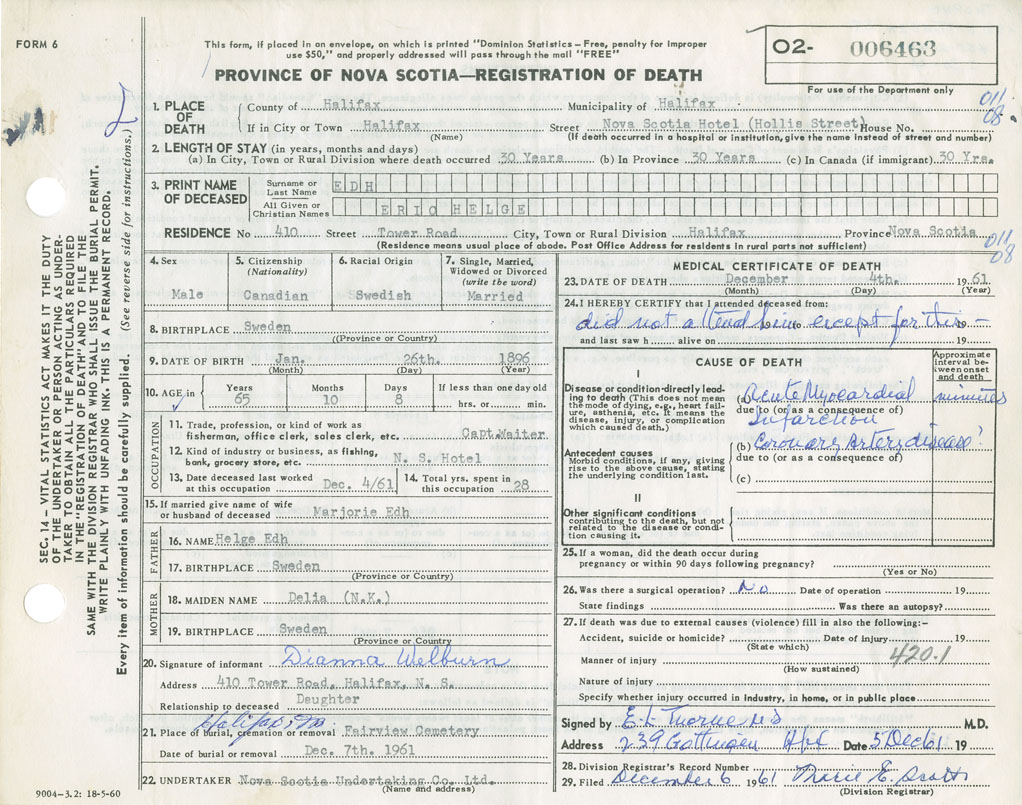 FORM 6
This form, if placed in an envelope, on which is printed "Dominion Statistics – Free, penalty for improper
use $50," and properly addressed will pass through the mail "FREE"
02- 006463
For use of the Department only
PROVINCE OF NOVA SCOTIA—REGISTRATION OF DEATH
SEC. 14 – VITAL STATISTICS ACT MAKES IT THE DUTY
OF THE UNDERTAKER OR PERSON ACTING AS UNDER-
TAKER TO OBTAIN ALL THE PARTICULARS REQUIRED
IN THE "REGISTRATION OF DEATH" AND TO FILE THE
SAME WITH THE DIVISION REGISTRAR WHO SHALL ISSUE THE BURIAL PERMIT.
WRITE PLAINLY WITH UNFADING INK. THIS IS A PERMANENT RECORD.
Every item of information should be carefully supplied. (See reverse side for instructions.)
1. PLACE OF DEATH
County of Halifax Municipality of Halifax
011
08
If in City or Town Halifax Street Nova Scotia Hotel (Hollis Street) House No.
(Name) (If death occurred in a hospital or institution, give the name instead of street and number)
2. LENGTH OF STAY (in years, months and days)
(a) In City, Town or Rural Division where death occurred 30 Years (b) In Province 30 Years (c) In Canada (if immigrant) 30 Yrs.
3. PRINT NAME OF DECEASED
Surname or Last Name EDH
All Given or Christian Names ERIC HELGE
RESIDENCE No 410 Street Tower Road, City, Town or Rural Division Halifax Province Nova Scotia
(Residence means usual place of abode. Post Office Address for residents in rural parts not sufficient)
011
08
4. Sex
Male
5. Citizenship (Nationality)
Canadian
6. Racial Origin
Swedish
7. Single, Married, Widowed or Divorced (write the word)
Married
8. BIRTHPLACE Sweden
(Province or Country)
9. DATE OF BIRTH Jan. 26th. 1896
(Month) (Day) (Year)
10. AGE in
Years Months Days If less than one day old
65 10 8 hrs. or min.
OCCUPATION
11. Trade, profession, or kind of work as
fisherman, office clerk, sales clerk, etc. Capt.Waiter
12. Kind of industry or business, as fishing,
bank, grocery store, etc. N. S. Hotel
13. Date deceased last worked
at this occupation Dec. 4/61
14. Total yrs. spent in
this occupation 28
15. If married give name of wife
or husband of deceased Marjorie Edh
FATHER
16. NAME Helge Edh
17. BIRTHPLACE Sweden
(Province or Country)
MOTHER
18. MAIDEN NAME Delia (N.K.)
19. BIRTHPLACE Sweden
(Province or Country
20. Signature of informant Dianna Welburn
Address 410 Tower Road, Halifax, N. S.
Relationship to deceased Daughter
Halifax, NS
21. Place of burial, cremation or removal Fairview Cemetery
Date of burial or removal Dec. 7th. 1961
22. UNDERTAKER Nova Scotia Undertaking Co. Ltd.
(Name and address)
9004–3.2: 18-5-60
MEDICAL CERTIFICATE OF DEATH
23. DATE OF DEATH December 4th. 1961
(Month) (Day) (Year)
24. I HEREBY CERTIFY that I attended deceased from:
did not attend him except for this –
19 to 19
and last saw h alive on 19
CAUSE OF DEATH
Approximate interval between onset and death
I
Disease or condition-directly lead-
ing to death (This does not mean
the mode of dying, e.g., heart fail-
ure, asthenia, etc. It means the
disease, injury, or complication
which caused death.)
(a) Acute Myocardial minutes
due to (or as a consequence of)
Infarction
(b) Coronary Artery disease?
due to (or as a consequence of)
(c)
Antecedent causes
Morbid conditions, if any, giving
rise to the above cause, stating
the underlying condition last.
II
Other significant conditions
contributing to the death, but not
related to the disease or condi-
tion causing it.
25. If a woman, did the death occur during
pregnancy or within 90 days following pregnancy?
(Yes or No)
26. Was there a surgical operation? No Date of operation 19
State findings Was there an autopsy?
27. If death was due to external causes (violence) fill in also the following:–
Accident, suicide or homicide? Date of injury 19
(State which)
420.1
Manner of injury
(How sustained)
Nature of injury
Specify whether injury occurred in industry, in home, or in public place
Signed by E. L. Thorne MD M.D.
Address 239 Gottingen Hfx Date 5 Dec 61 19
28. Division Registrar's Record Number
29. Filed December 6 1961
(Division Registrar)